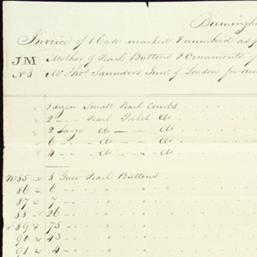 Birming
Invoice of 1 Case marked & numbered as
JM Mother of Pearl Buttons & Ornaments
No 3 Mr Thos Saunders Junr of London for
1 dozen Small Pearl Combs
2 " Pearl Pocket do.
2 Large do — do
6 " do — do.
4 " do — do.
No 85 × 8 Gross Pearl Buttons
86 - 6
87 × 7
88 × 26
× 89 × 75
90 × 43
91 × 4